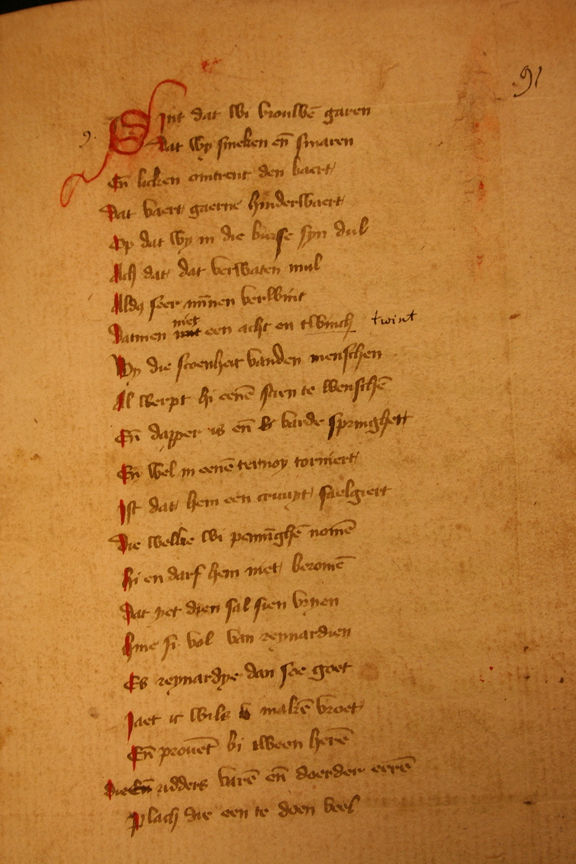 91
9.
Sint dat wi vrouwē garen
Dat wy smeken eñ smaren
Eñ licken omtrent den baert
Dat vaert gaerne hinderwaert
Op dat wy in die burse syn dul
Ach dat dat verwaten mul
Aldus seer minnen verwint
Datmen niet een acht en twinch twint
By die scoenheit vanden menschen
Al werpt hi eenē steen te wenschē
Eñ dapper is eñ varde springhett
Eñ wel in eenē ternoy torniert
Ist dat hem een cruupt faelgiert
Die welke wi penninghē nomē
Hi en darf hem niet beromē
Dat yet dien sal sien vrien
Hine si vol van reynardien
Es reynardye dan soe goet
Jaet ic wils v makē vroet
Eñ prouet bi tween herē
Die ridders varē eñ doerder eerē
Plach die een te doen veel